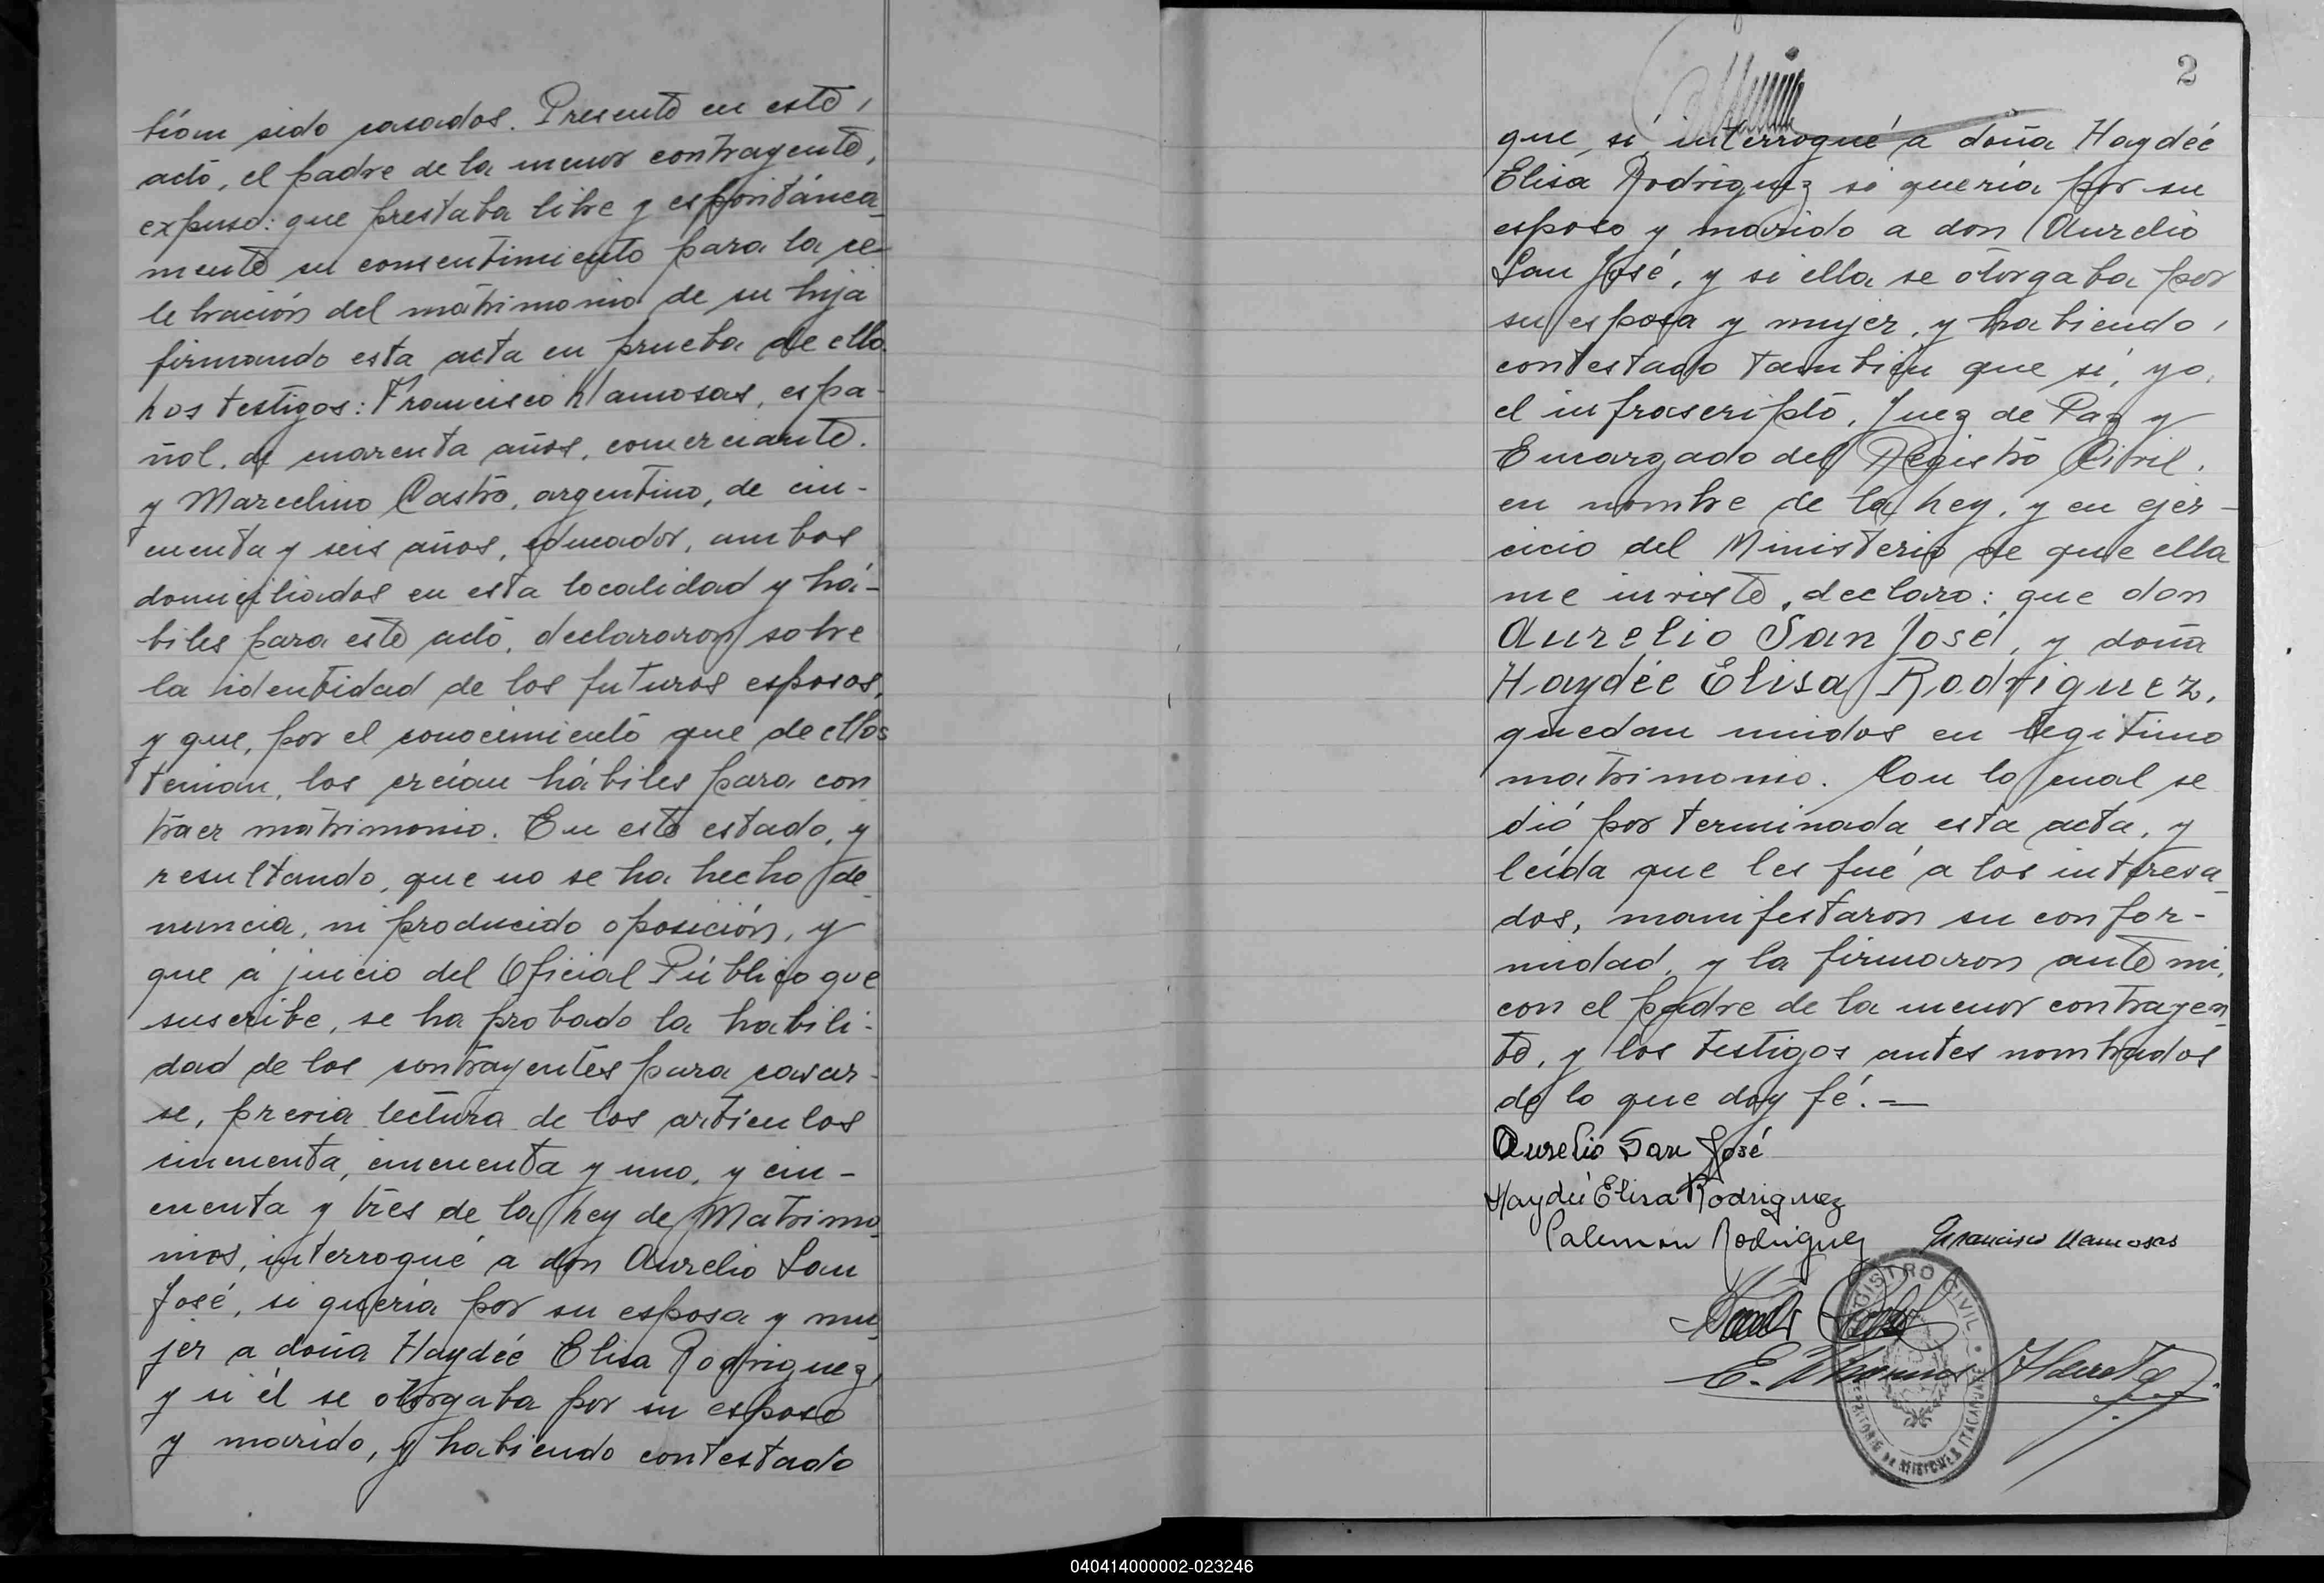 bían sido casados. Presente en este,
acto, el padre de la menor contrayente,
expuso: que prestaba libre y espontánea-
mente su consentimiento para la ce-
lebración del matrimonio de su hija
firmando esta acta en prueba de ello.
Los testigos: Francisco Llamosas, espa-
ñol, de cuarenta años, comerciante.
y Marcelino Castro, argentino, de cin-
cuenta y seis años, educador, ambos
domiciliados en esta localidad y há-
biles para este acto, declararon sobre
la identidad de los futuros esposos,
y que, por el conocimiento que de ellos
tenían, los creían hábiles para con
traer matrimonio. En este estado, y
resultando, que no se ha hecho de
nuncia, ni producido oposición, y
que á juicio del Oficial Público que
suscribe, se ha probado la habili-
dad de los contrayentes para casar-
se, previa lectura de los artículos
cincuenta, cincuenta y uno, y cin-
cuenta y tres de la Ley de Matrimo-
nios, interrogué a don Aurelio San
José, si quería por su esposa y mu-
jer a doña Haydée Elisa Rodriguez,
y si él se otorgaba por su esposo
y marido, y habiendo contestado
2
que sí, interrogué a doña Haydée
Elisa Rodriguez si quería por su
esposo y marido a don Aurelio
San José, y si ella se otorgaba por
su esposa y mujer, y habiendo,
contestado también que sí, yo,
el infrascripto, Juez de Paz y
Encargado del Registro Civil,
en nombre de la Ley, y en ejer-
cicio del Ministerio de que ella
me inviste, declaro: que don
Aurelio San José, y doña
Haydée Elisa Rodriguez,
quedan unidos en legítimo
matrimonio. Con lo cual se
dió por terminada esta acta, y
leída que les fué a los interesa-
dos, manifestaron su confor-
midad, y la firmaron ante mi,
con el padre de la menor contrayen-
te, y los testigos antes nombrados
de lo que doy fé.—
Aurelio San José
Haydée Elisa Rodriguez
Palemon Rodriguez Francisco Llamosas
REGISTRO CIVIL
TERRITORIO DE MISIONES ITACARUARE
E.
040414000002-023246